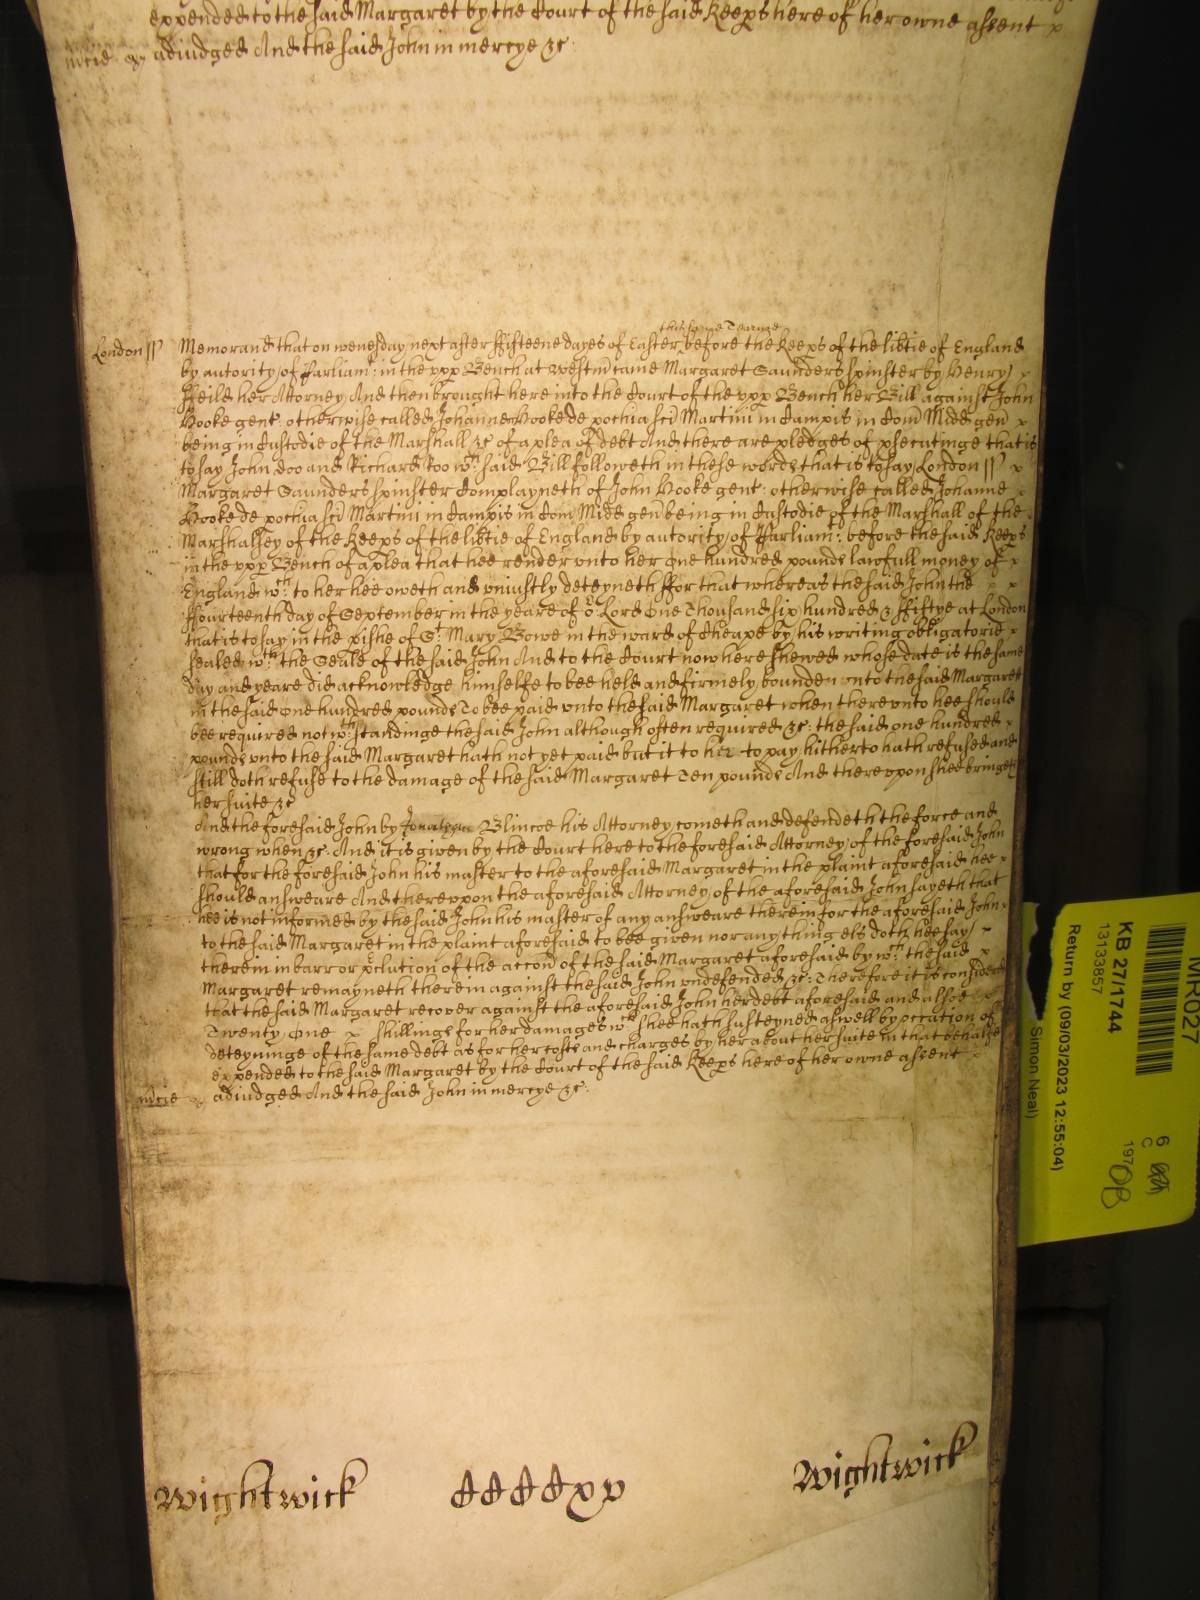 expended to the said Margaret by the Court of the said Keeps here of her owne assent
mcie adiudged And the said John in mercye &c
this same Tearme
London ss Memorand that on wensday next after ffifteene dayes of Easter before the Keeps of the libtie of England
by autority of Parliam: in the vpp Bench at Westm came Margaret Saunders spinster by Henry
ffeild her Attorney And then brought here into the Court of the vpp Bench her Bill against John
Hooke gent: otherwise called Johanne Hooke de pochia sci Martini in Campis in Com Midd gen
being in Custodie of the Marshall &c of a plea of debt And there are pledges of psecutinge that is
to say John Doo and Richard Roo wch said Bill followeth in these words that is to say London ss
Margaret Saunders spinster Complayneth of John Hooke gent: otherwise called Johanne
Hooke de pochia sci Martini in Campis in Com Midd gen being in Custodie of the Marshall of the
Marshallsey of the Keeps of the libtie of England by autority of Parliamt: before the said Keeps
in the vpp Bench of a plea that hee render vnto her One hundred pounds lawfull money of
England wch: to her hee oweth and vniustly deteyneth ffor that whereas the said John the
ffourteenth day of September in the yeare of or Lord One Thousand six hundred & ffiftye at London
that is to say in the pishe of St: Mary Bowe in the ward of Cheape by his writing obligatorie
sealed wth the Seale of the said John And to the Court now here shewed whose date is the same
day and yeare did acknowledge himselfe to bee held and firmely bounden vnto the said Margarett
in the said One hundred pounds To bee paid vnto the said Margaret when therevnto hee should
bee required notwthstandinge the said John although often required &c: the said one hundred
pounds vnto the said Margaret hath not yet paid but it to her to pay hitherto hath refused and
still doth refuse to the damage of the said Margaret Ten pounds And therevpon shee bringeth
her suite &c
And the foresaid John by Jonathan Blincoe his Attorney cometh and defendeth the force and
wrong when &c. And it is given by the Court here to the foresaid Attorney of the foresaid John
that for the foresaid John his master to the aforesaid Margaret in the plaint aforesaid hee
should answeare And therevpon the aforesaid Attorney of the aforesaid John sayeth that
hee is not informed by the said John his master of any answeare therein for the aforesaid John
to the said Margaret in the plaint aforesaid to bee given nor any thing els doth hee say
therein in barr or pclution of the accon of the said Margaret aforesaid by wch: the said
Margaret remayneth therein against the said John vndefended &c: Therefore it is considered
that the said Margaret recover against the aforesaid John her debt aforesaid and alsoe
Twenty One shillings for her damages wch shee hath susteyned aswell by occation of
deteyninge of the same debt as for her costs and charges by her about her suite in that behalfe
expended to the said Margaret by the Court of the said Keeps here of her owne assent
mcie adiudged And the said John in mercye &c:
Wightwick CCCCxv Wightwick
MR027
KB 27/1744
13133857
Return by (09/03/2023 12:55:04)
Simon Neal)
6
C
197